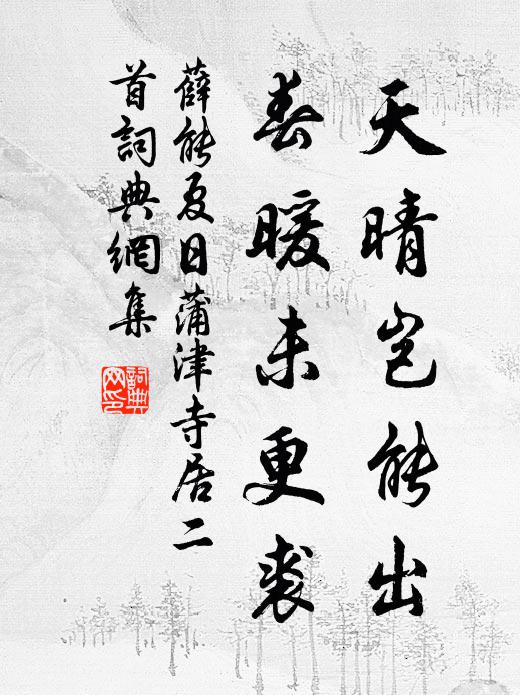 天晴岂能出
春暖未更裘
薛能夏日蒲津寺居二
首詞典網集
詞典
网印